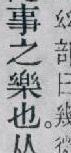 事之樂也。从
部曰幾